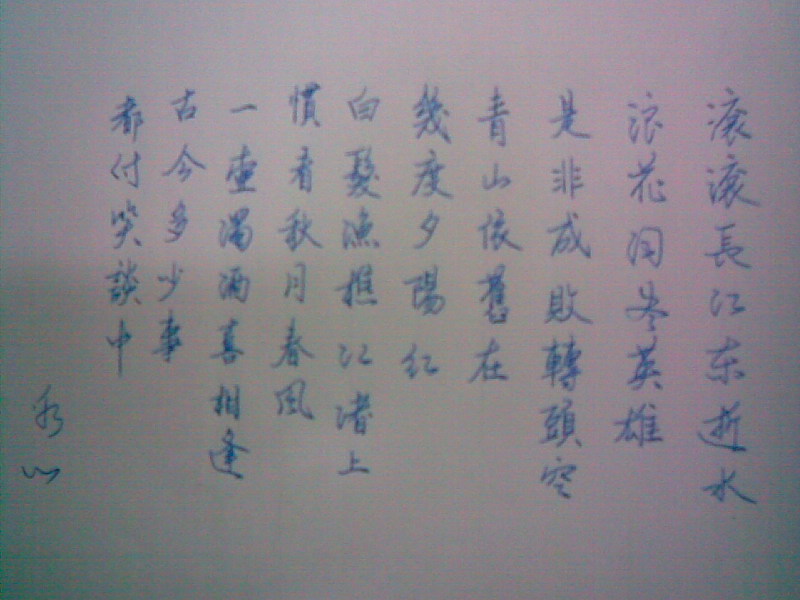 滚滚長江东逝水
浪花淘尽英雄
是非成敗轉頭空
青山依舊在
幾度夕陽红
白髮漁樵江渚上
慣看秋月春风
一壺濁酒喜相逢
古今多少事
都付笑談中